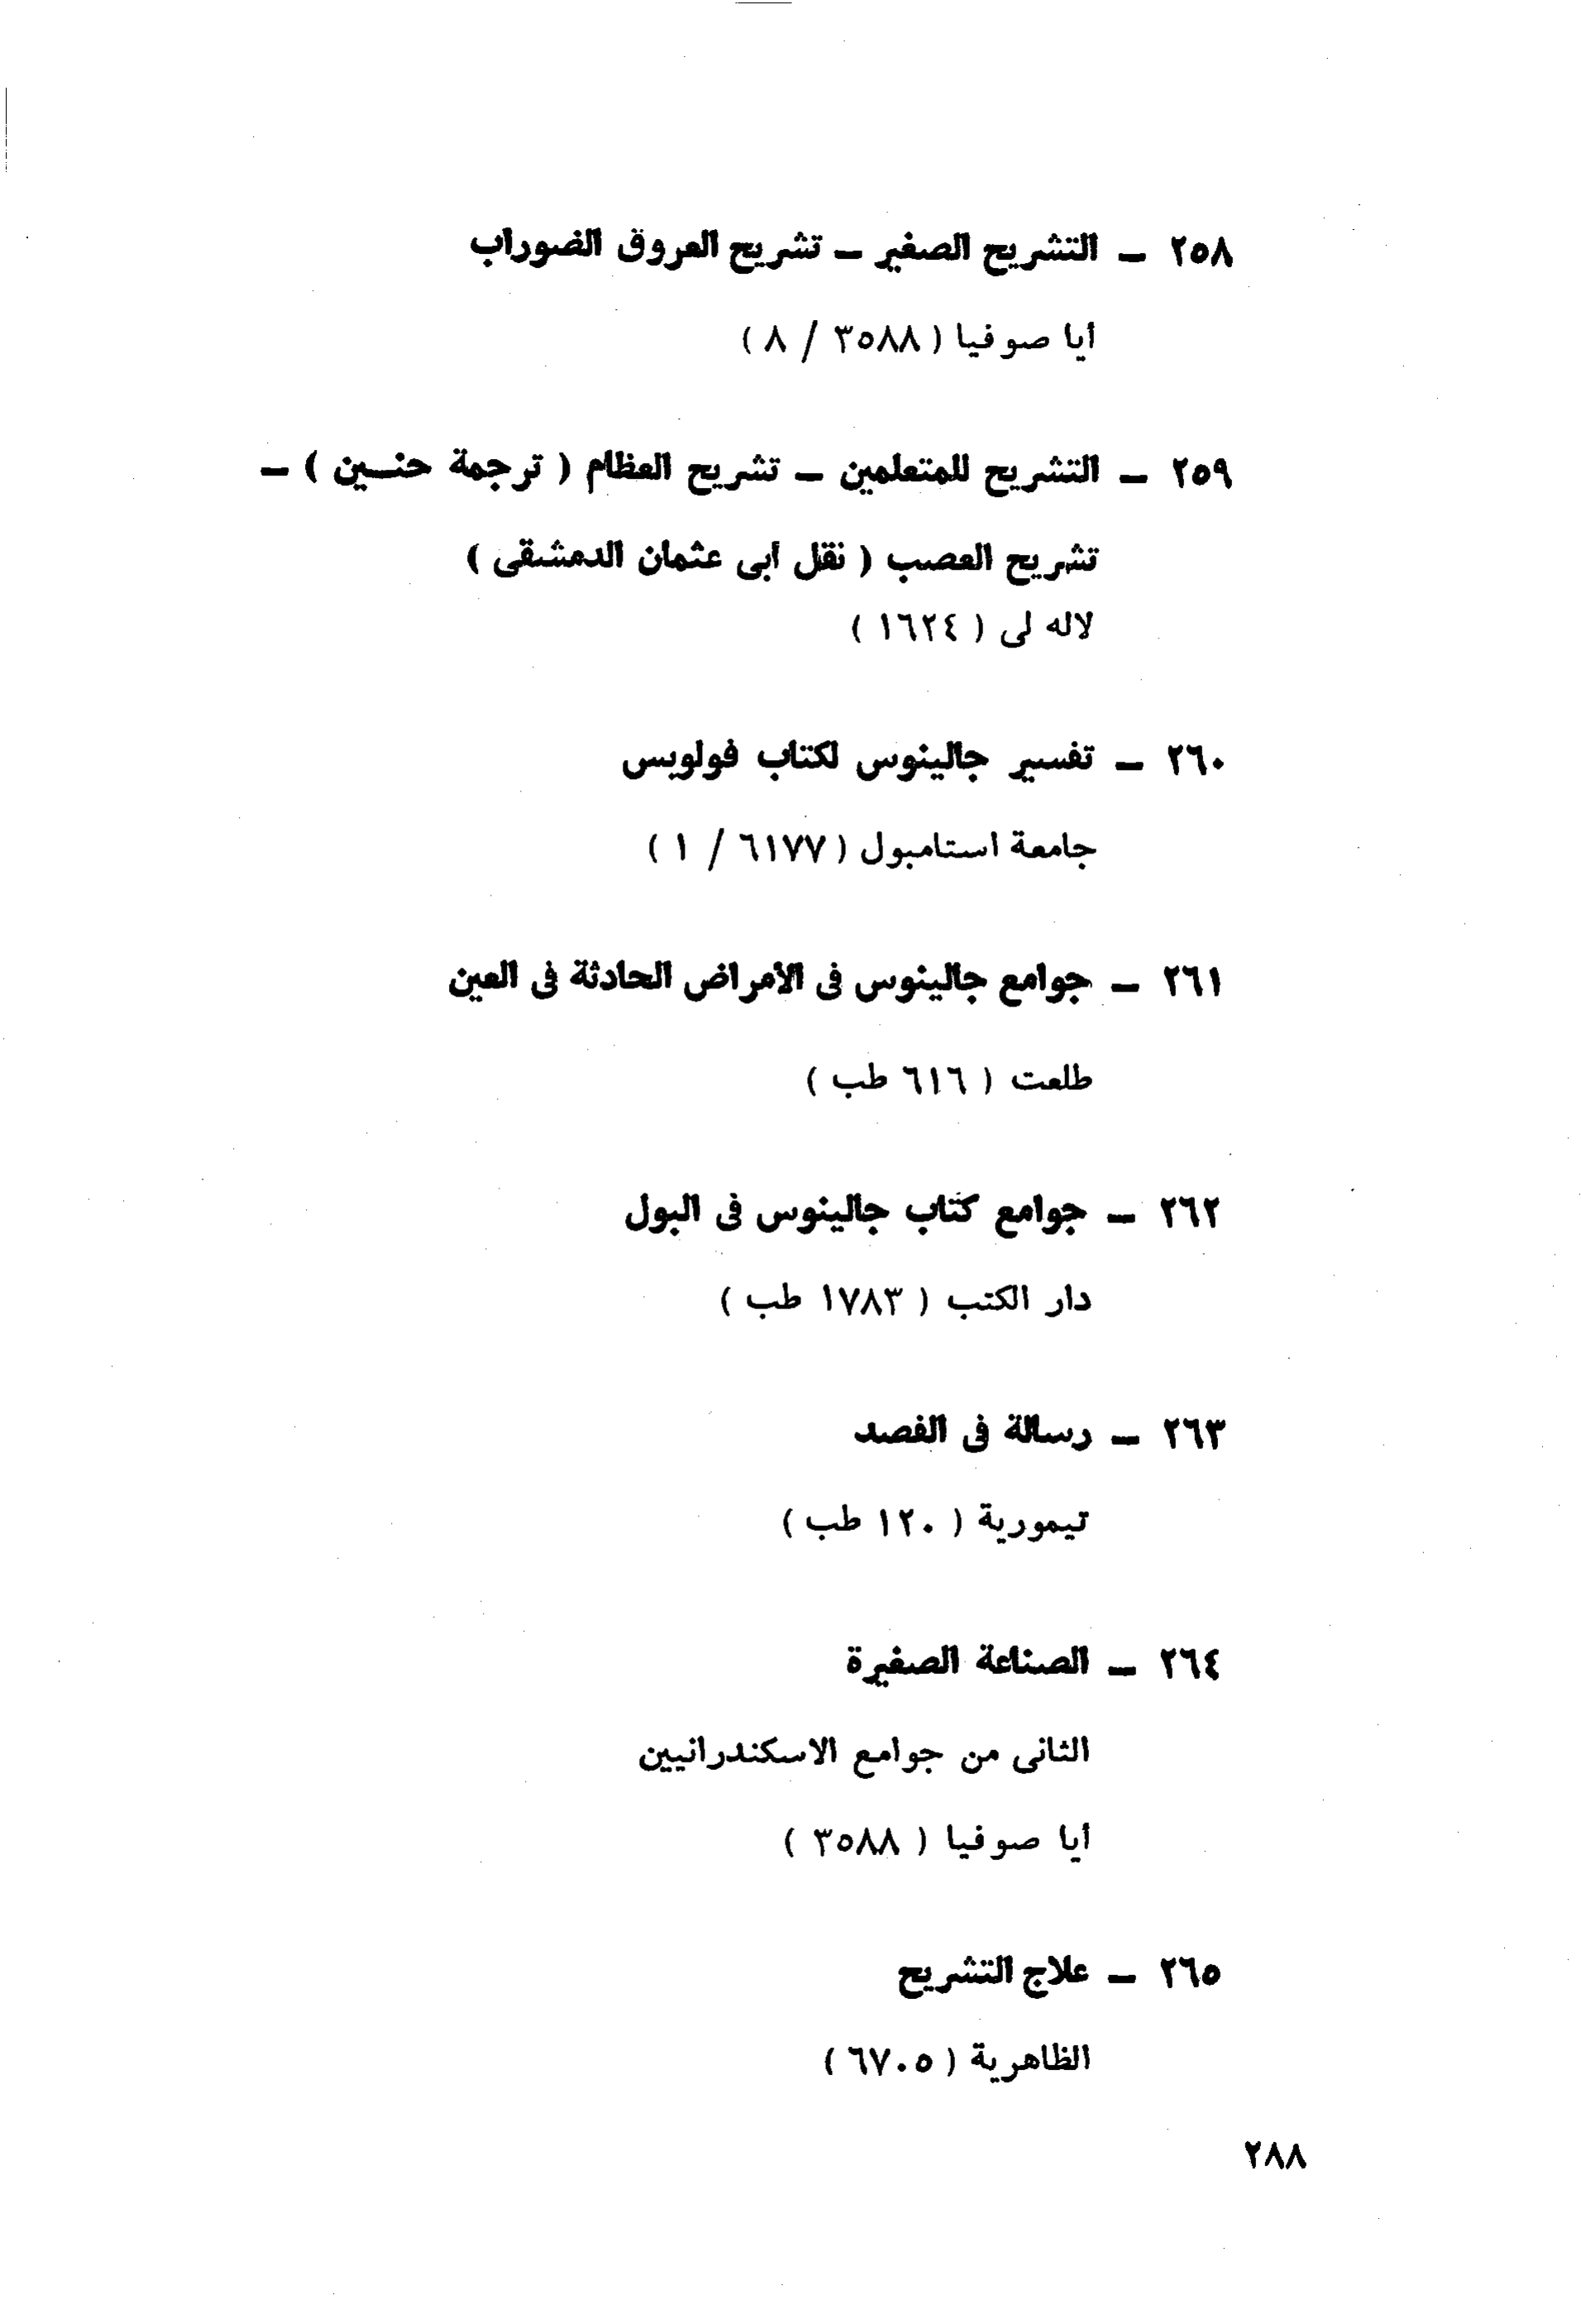 ٢٥٨ – التشريح الصغير – تشريح العروق الضوراب
أيا صوفيا ( ٣٥٨٨ / ٨ )
٢٥٩ – التشريح للمتعلمين – تشريح العظام ( ترجمة حنـين ) –
تشريح العصب ( نقل أبى عثمان الدمشقى )
لاله لى ( ١٦٢٤ )
٢٦٠ – تفسير جالينوس لكتاب فولويس
جامعة استامبول ( ٦١٧٧ / ١ )
٢٦١ – جوامع جالينوس فى الأمراض الحادثة فى العين
طلعت ( ٦١٦ طب )
٢٦٢ – جوامع كتاب جالينوس فى البول
دار الكتب ( ١٧٨٣ طب )
٢٦٣ – رسالة فى الفصد
تيمورية ( ١٢٠ طب )
٢٦٤ – الصناعة الصغيرة
الثانى من جوامع الاسكندرانيين
أيا صوفيا ( ٣٥٨٨ )
٢٦٥ – علاج التشريح
الظاهرية ( ٦٧٠٥ )
٢٨٨